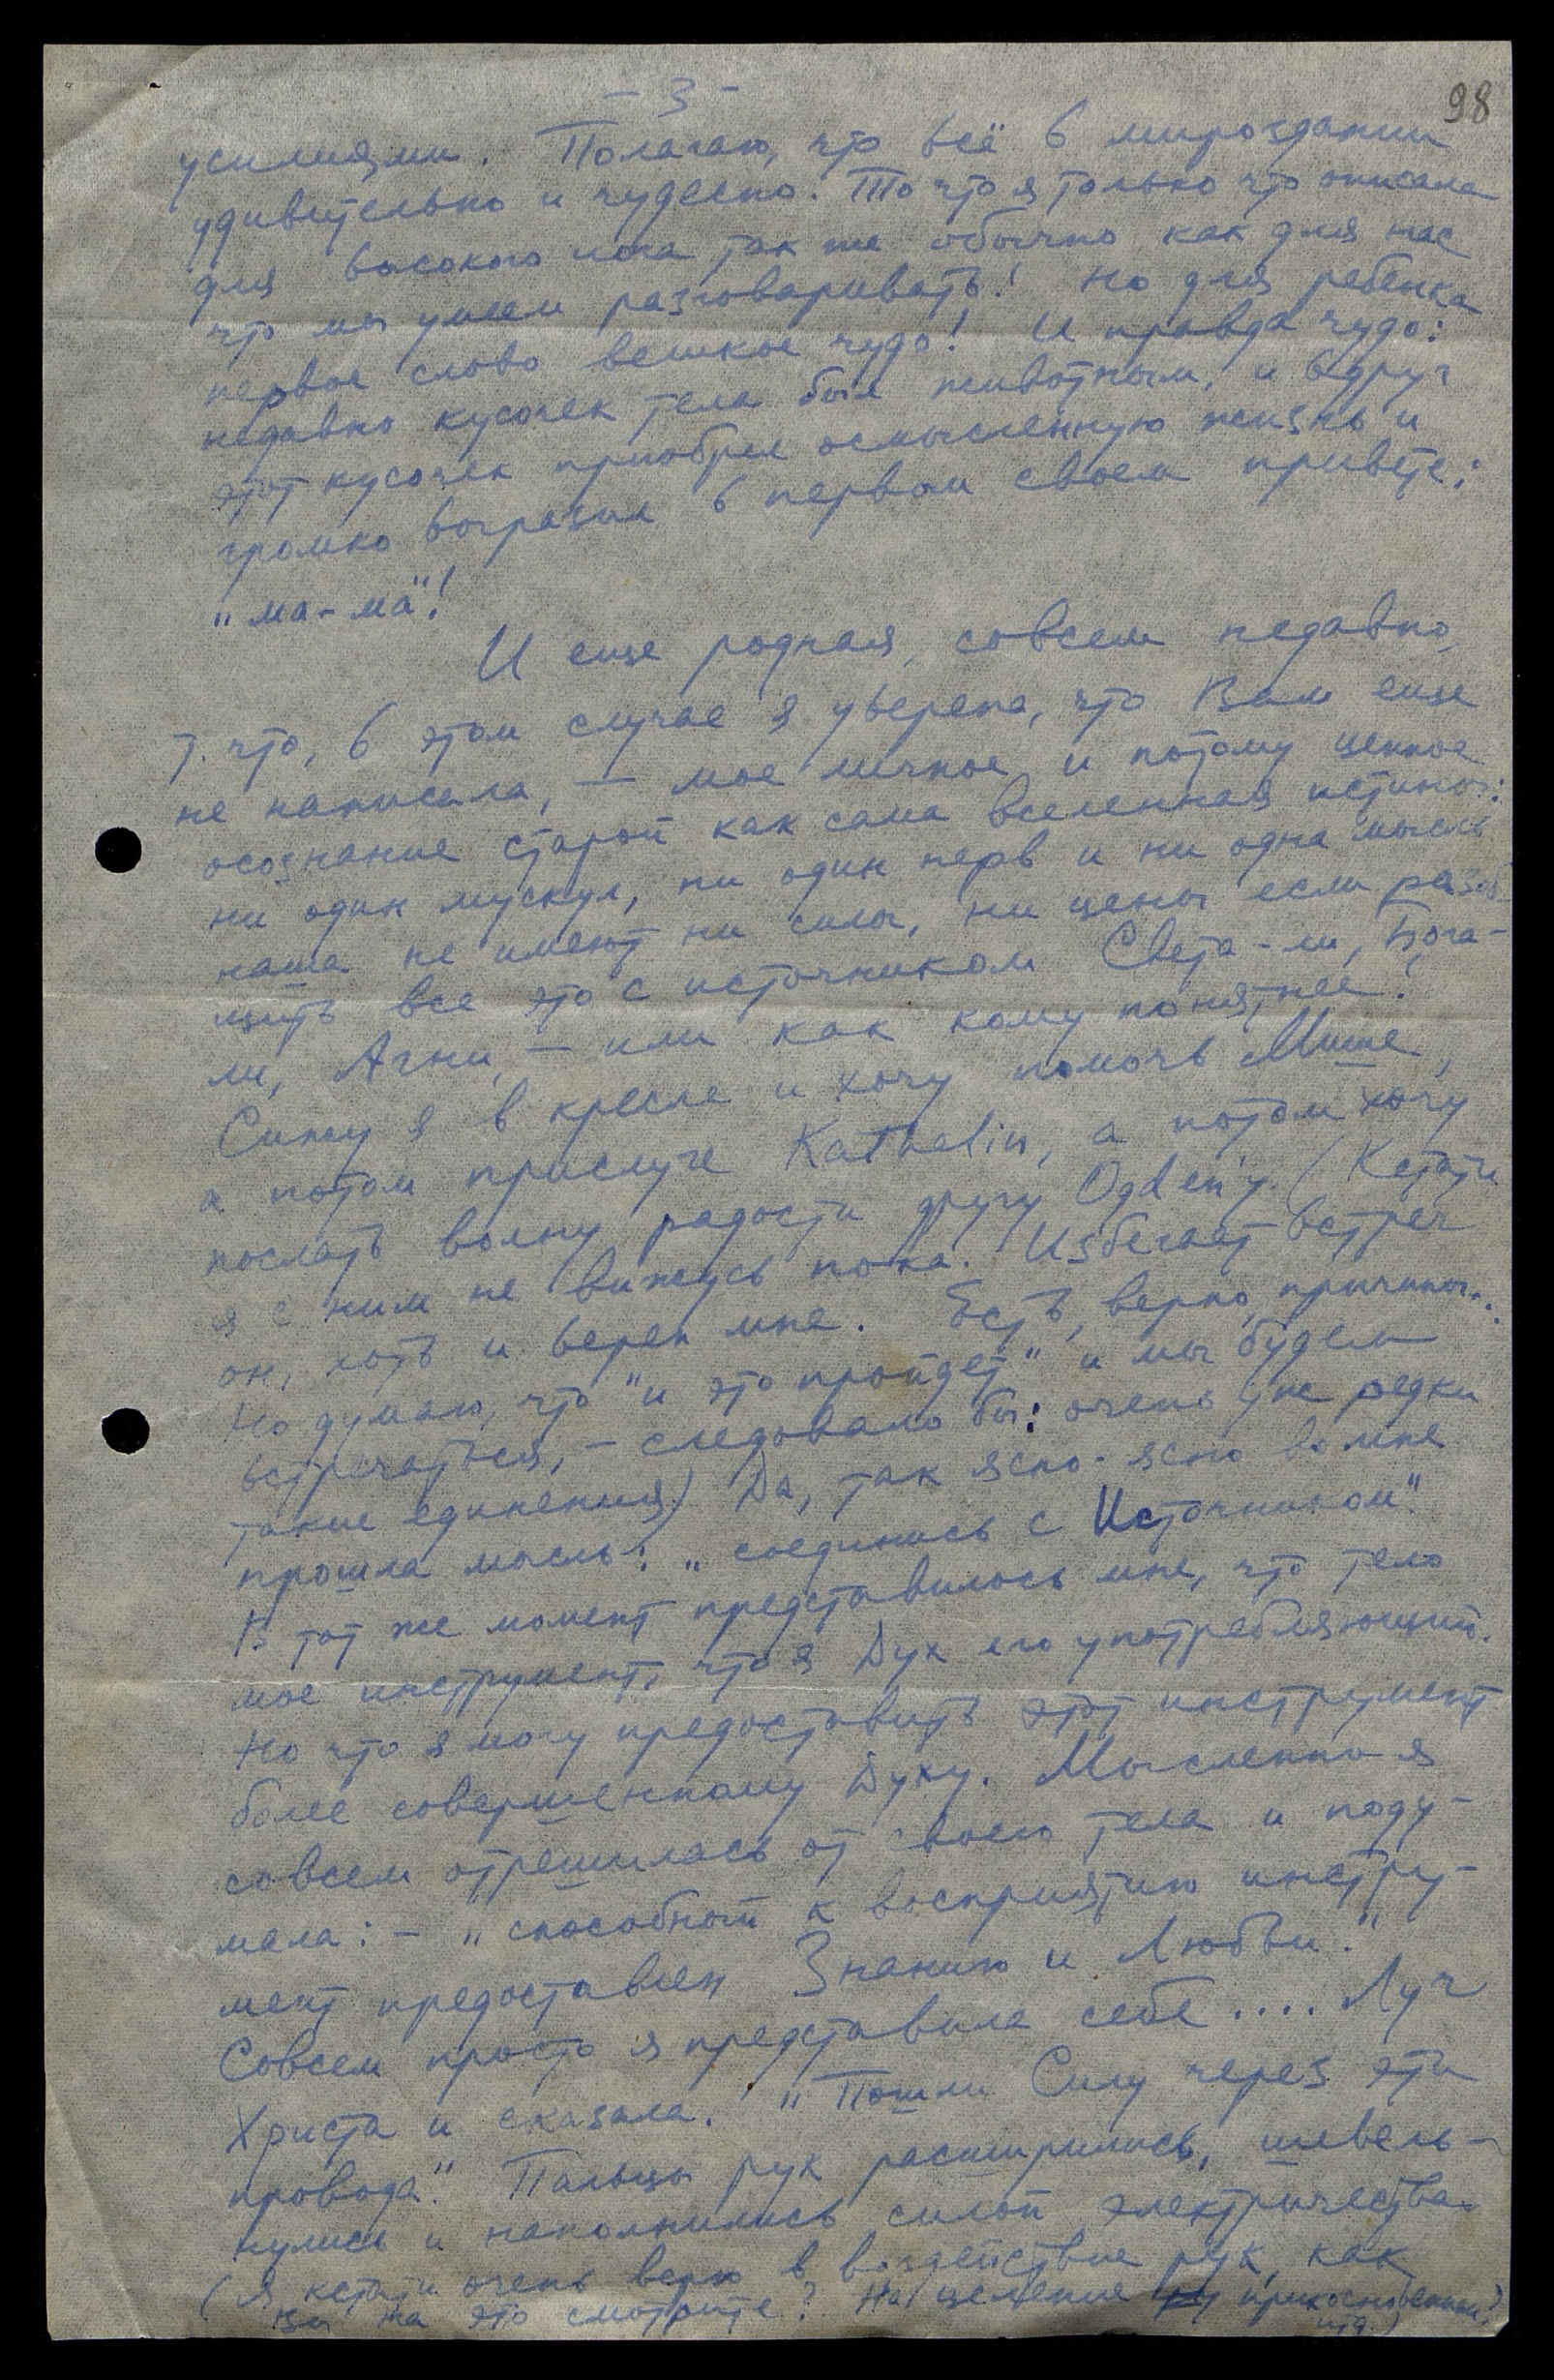 - 3 -
98
усилиями. Полагаю, что всё в мироздании
удивительно и чудесно. То что я только что описала
для высокого йога так же обычно как для нас
что мы умеем разговаривать! Но для ребенка
первое слово великое чудо! И правда чудо:
недавно кусочек тела был животным, и вдруг
этот кусочек приобрел осмысленную жизнь и
громко выразил в первом своем привете:
"ма-ма"!
И еще родная, совсем недавно,
т. что, в этом случае я уверена, что Вам еще
не написала, — мое личное и потому ценное
осознание старой как сама вселенная истины:
ни один мускул, ни один нерв и ни одна мысль
наша не имеют ни силы, ни цены если разоб-
щить все это с источником Света-ли, Бога-
ли, Агни, — или как кому понятнее!
Сижу я в кресле и хочу помочь Мише,
а потом прислуге Kathelin, а потом хочу
послать волну радости другу Ogden'у. (Кстати
я с ним не вижусь пока. Избегает встреч
он, хоть и верен мне. Есть, верно, причины..
Но думаю, что "и это пройдет" и мы будем
встречаться, — следовало бы: очень уже редки
такие единения) Да, так ясно-ясно во мне
прошла мысль: "соединись с Источником".
В тот же момент представилось мне, что тело
мое инструмент, что я Дух его употребляющий.
Но что я могу предоставить этот инструмент
более совершенному Духу. Мысленно я
совсем отрешилась от своего тела и поду-
мала: — "способный к восприятию инстру-
мент предоставлен Знанию и Любви."
Совсем просто я представила себе .... Луч
Христа и сказала. "Пошли Силу через эти
провода". Пальцы рук расширились, шевель-
нулись и наполнились силой электричества.
(Я кстати очень верю в воздействие рук, как
Вы на это смотрите? На целение прикосновением?
и т.д.)